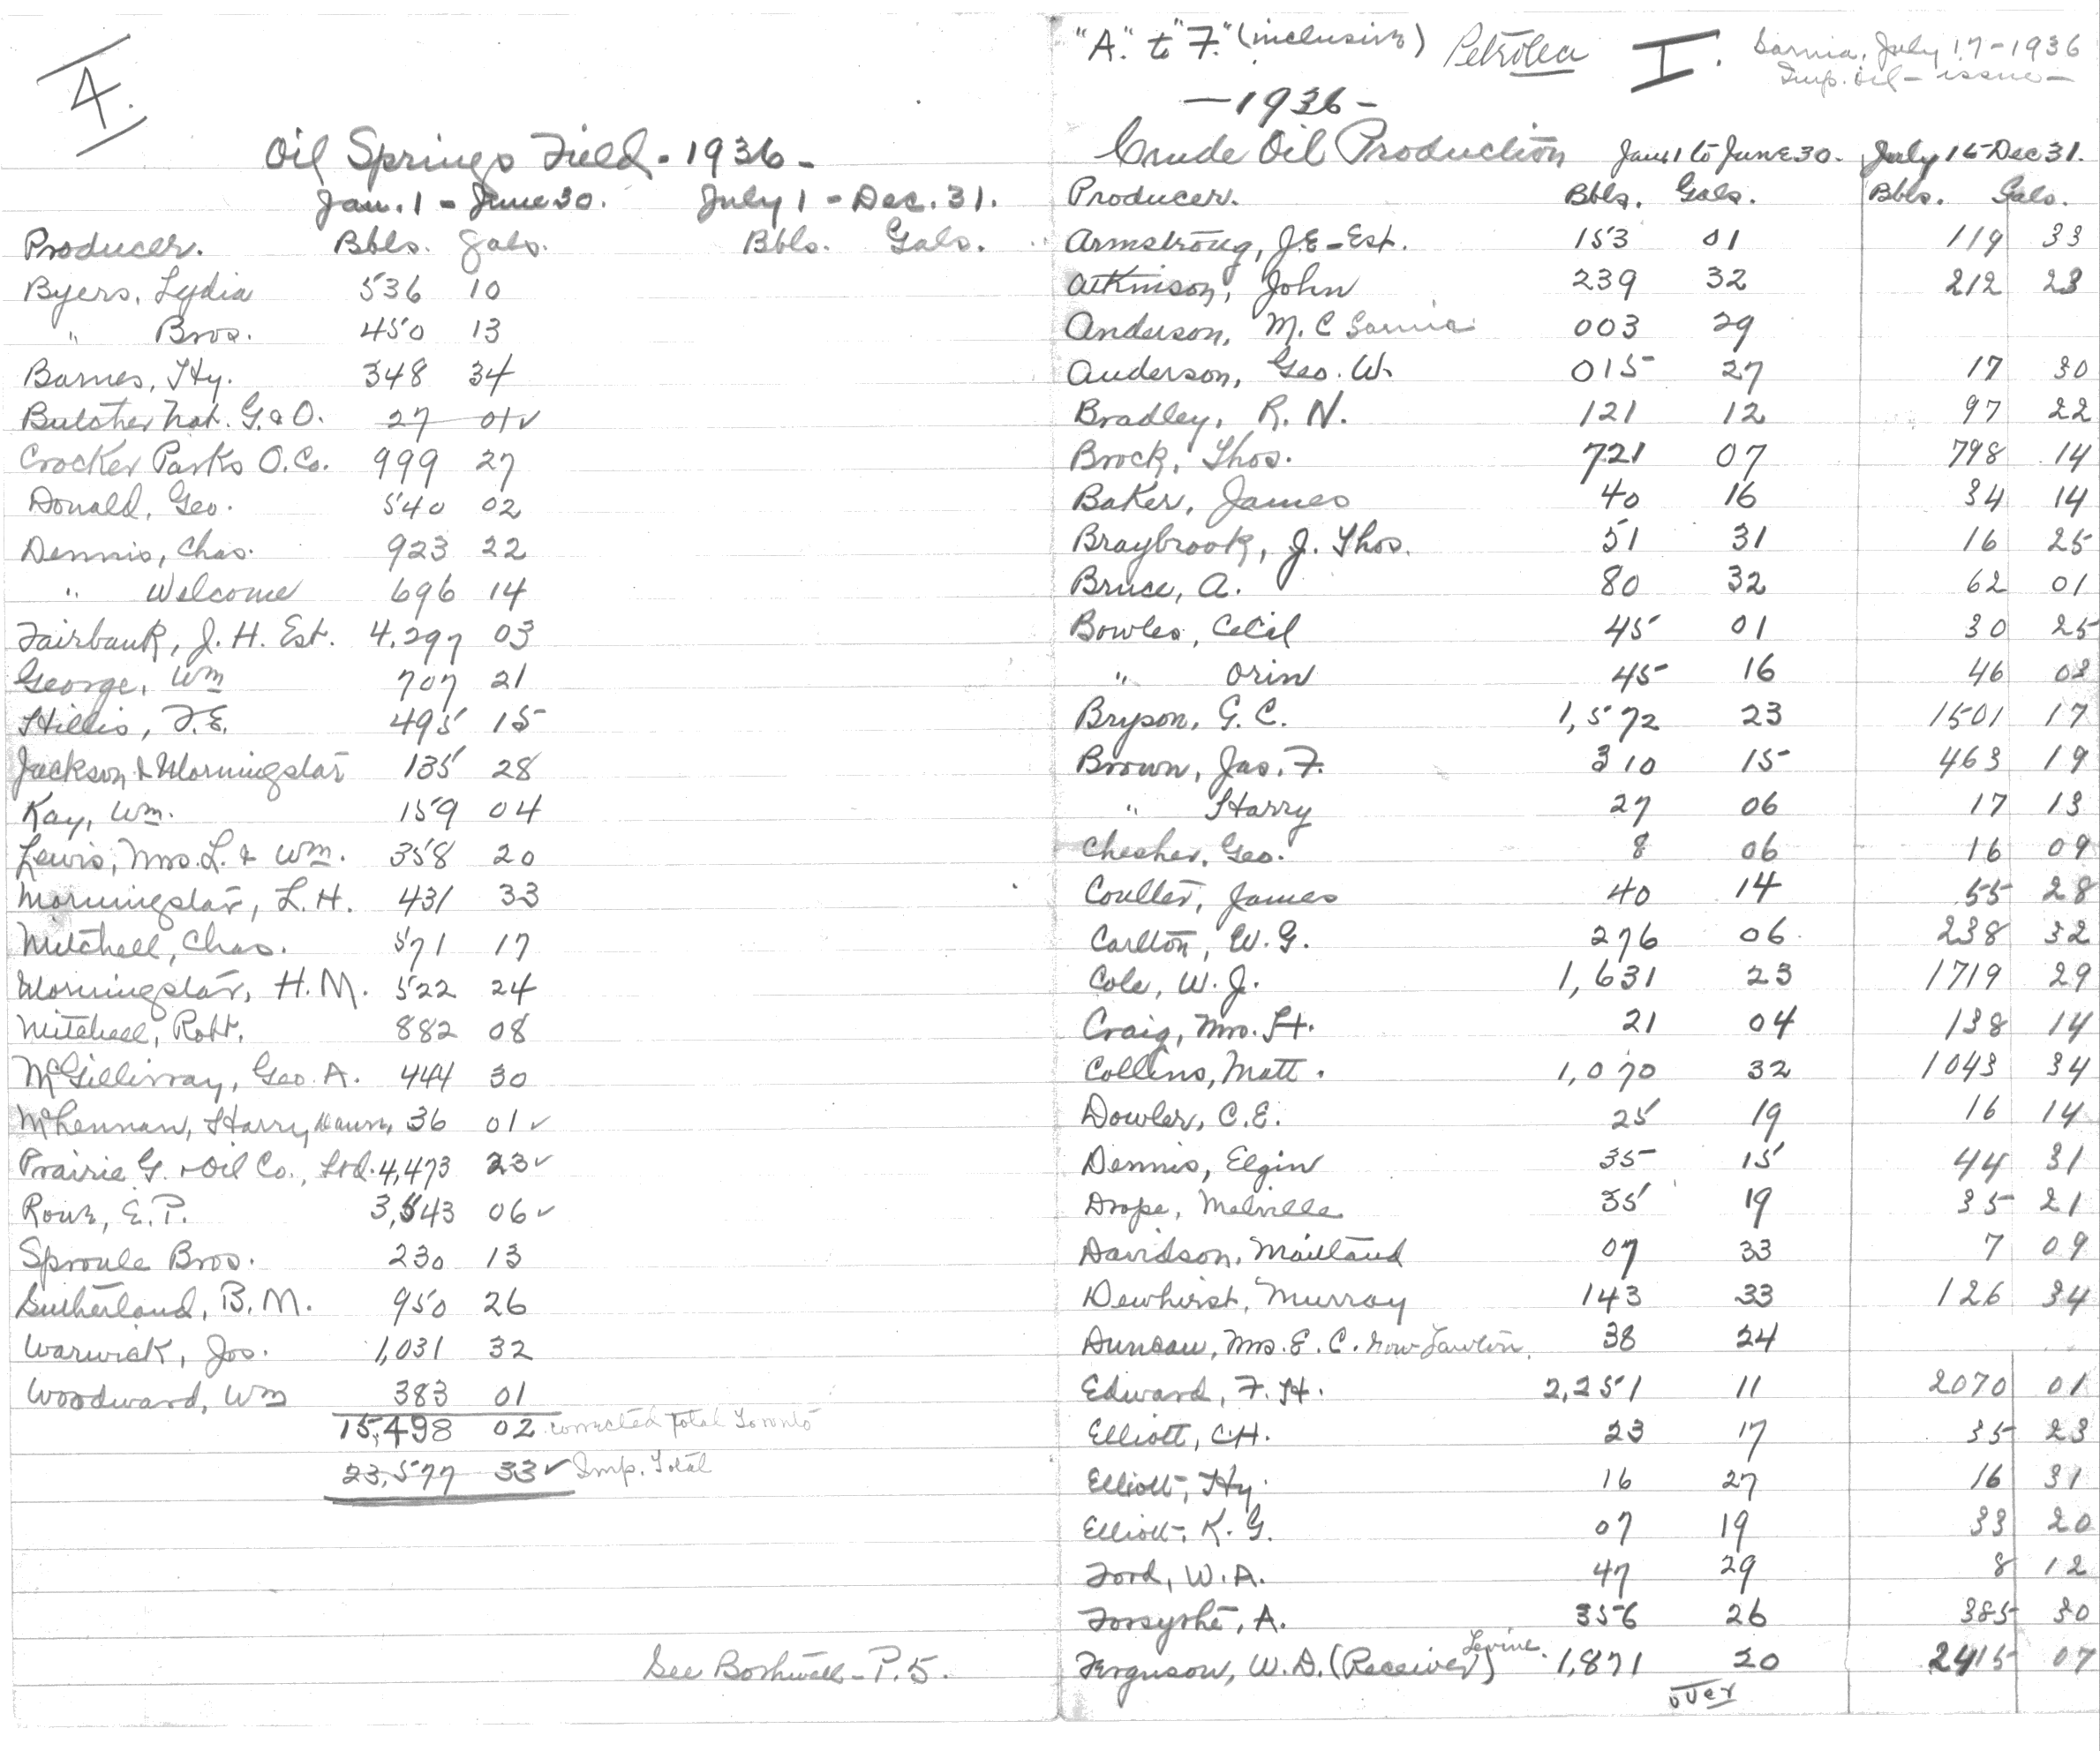 4.
Oil Springs Field - 1936 -
Jan. 1 - June 30. July 1 - Dec. 31.
Producer. Bbls. Gals. Bbls. Gals.
Byers, Lydia 536 10
" Bros. 450 13
Barnes, Hy. 348 34
Butcher Nat. G. & O. 27 01 ✓
Crocker Parks O. Co. 999 27
Donald, Geo. 540 02
Dennis, Chas. 923 22
" Welcome 696 14
Fairbank, J. H. Est. 4,297 03
George, Wm 707 21
Hillis, F. E. 495 15
Jackson & Morningstar 135 28
Kay, Wm. 159 04
Lewis, Mrs. L. & Wm. 358 20
Morningstar, L. H. 431 33
Mitchell, Chas. 571 17
Morningstar, H. M. 522 24
Mitchell, Robt. 882 08
McGillivray, Geo. A. 444 30
McLennan, Harry Dawn, 36 01 ✓
Prairie G. & Oil Co., Ltd. 4,473 23 ✓
Rowe, E. P. 3,543 06 ✓
Sproule Bros. 230 13
Sutherland, B. M. 950 26
Warwick, Jos. 1,031 32
Woodward, Wm 383 01
15,498 02 corrected total Toronto
23,577 33 ✓ Imp. Total
See Bothwell - P. 5.
"A." to "F." (inclusive) Petrolea I. Sarnia, July 17 - 1936
Imp. oil - issue -
- 1936 -
Crude Oil Production Jan. 1 to June 30. July 1 to Dec 31.
Producer. Bbls. Gals. Bbls. Gals.
Armstrong, J. E - Est. 153 01 119 33
Atkinson, John 239 32 212 23
Anderson, M. C Sarnia 003 29
Anderson, Geo. W. 015 27 17 30
Bradley, R. N. 121 12 97 22
Brock, Thos. 721 07 798 14
Baker, James 40 16 34 14
Braybrook, J. Thos. 51 31 16 25
Bruce, A. 80 32 62 01
Bowles, Cecil 45 01 30 25
" Orin 45 16 46 03
Bryson, G. C. 1,572 23 1501 17
Brown, Jas. F. 310 15 463 19
" Harry 27 06 17 13
Chesher, Geo. 8 06 16 09
Coulter, James 40 14 55 28
Carlton, W. G. 276 06 238 32
Cole, W. J. 1,631 23 1719 29
Craig, Mrs. H. 21 04 138 14
Collins, Matt. 1,070 32 1043 34
Dowler, C. E. 25 19 16 14
Dennis, Elgin 35 15 44 31
Drope, Melville 35 19 35 21
Davidson, Maitland 07 33 7 09
Dewhirst, Murray 143 33 126 34
Duncan, Mrs. E. C. now Lawton. 38 24
Edward, F. H. 2,251 11 2070 01
Elliott, C. H. 23 17 35 23
Elliott, Hy. 16 27 16 31
Elliott, K. G. 07 19 33 20
Ford, W. A. 47 29 8 12
Forsythe, A. 356 26 385 30
Ferguson, W. D. (Receiver) Levine. 1,871 20 2415 07
over